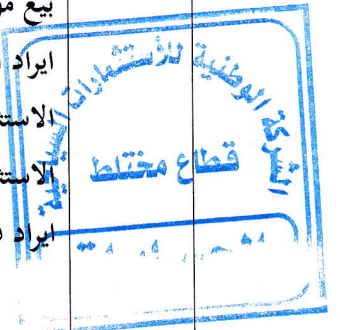 بيع مو
ايراد
الاستث
الاستث
ايراد
الشركة الوطنية للأستثمارات السياحية
قطاع مختلط